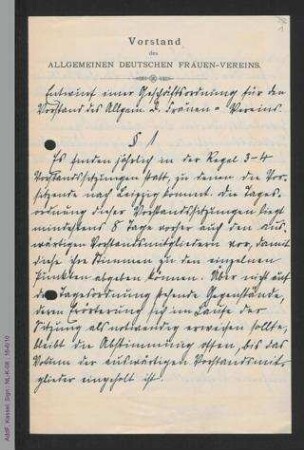 Vorstand
des
ALLGEMEINEN DEUTSCHEN FRAUEN-VEREINS.
Entwurf einer Geschäftsordnung für den
Vorstand des Allgem. D. Frauen-Vereins.
§ 1
Es finden jährlich in der Regel 3-4
Vorstandssitzungen statt, zu denen die Vor-
sitzende nach Leipzig kommt. Die Tages-
ordnung dieser Vorstandssitzungen liegt
mindestens 8 Tage vorher auch den aus-
wärtigen Vorstandsmitgliedern vor, damit
diese ihre Stimmen zu den einzelnen
Punkten abgeben können. Über nicht auf
der Tagesordnung stehende Gegenstände,
deren Erörterung sich im Laufe der
Sitzung als notwendig erweisen sollte,
bleibt die Abstimmung offen, bis das
Votum der auswärtigen Vorstandsmit-
glieder eingeholt ist.